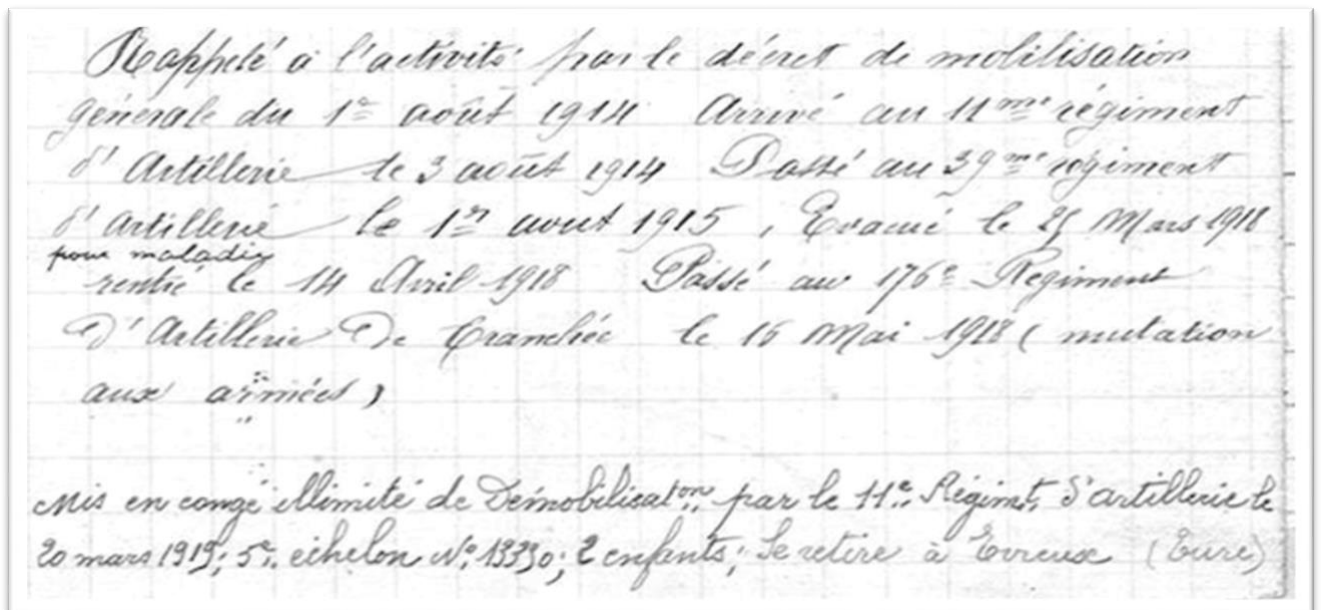 Rappelé à l'activité par le décret de mobilisation
générale du 1er août 1914 Arrivé au 11me régiment
d'Artillerie le 3 août 1914 Passé au 39me régiment
d'Artillerie le 1er aout 1915, Evacué le 25 Mars 1918
pour maladie
rentré le 14 Avril 1918 Passé au 176e Régiment
D'Artillerie De Tranchée le 16 Mai 1918 (mutation
aux armées)
Mis en congé illimité de Démobilisaton par le 11e Régimt d'artillerie le
20 mars 1919; 5e echelon No 13330; 2 enfants; Se retire à Evreux (Eure)